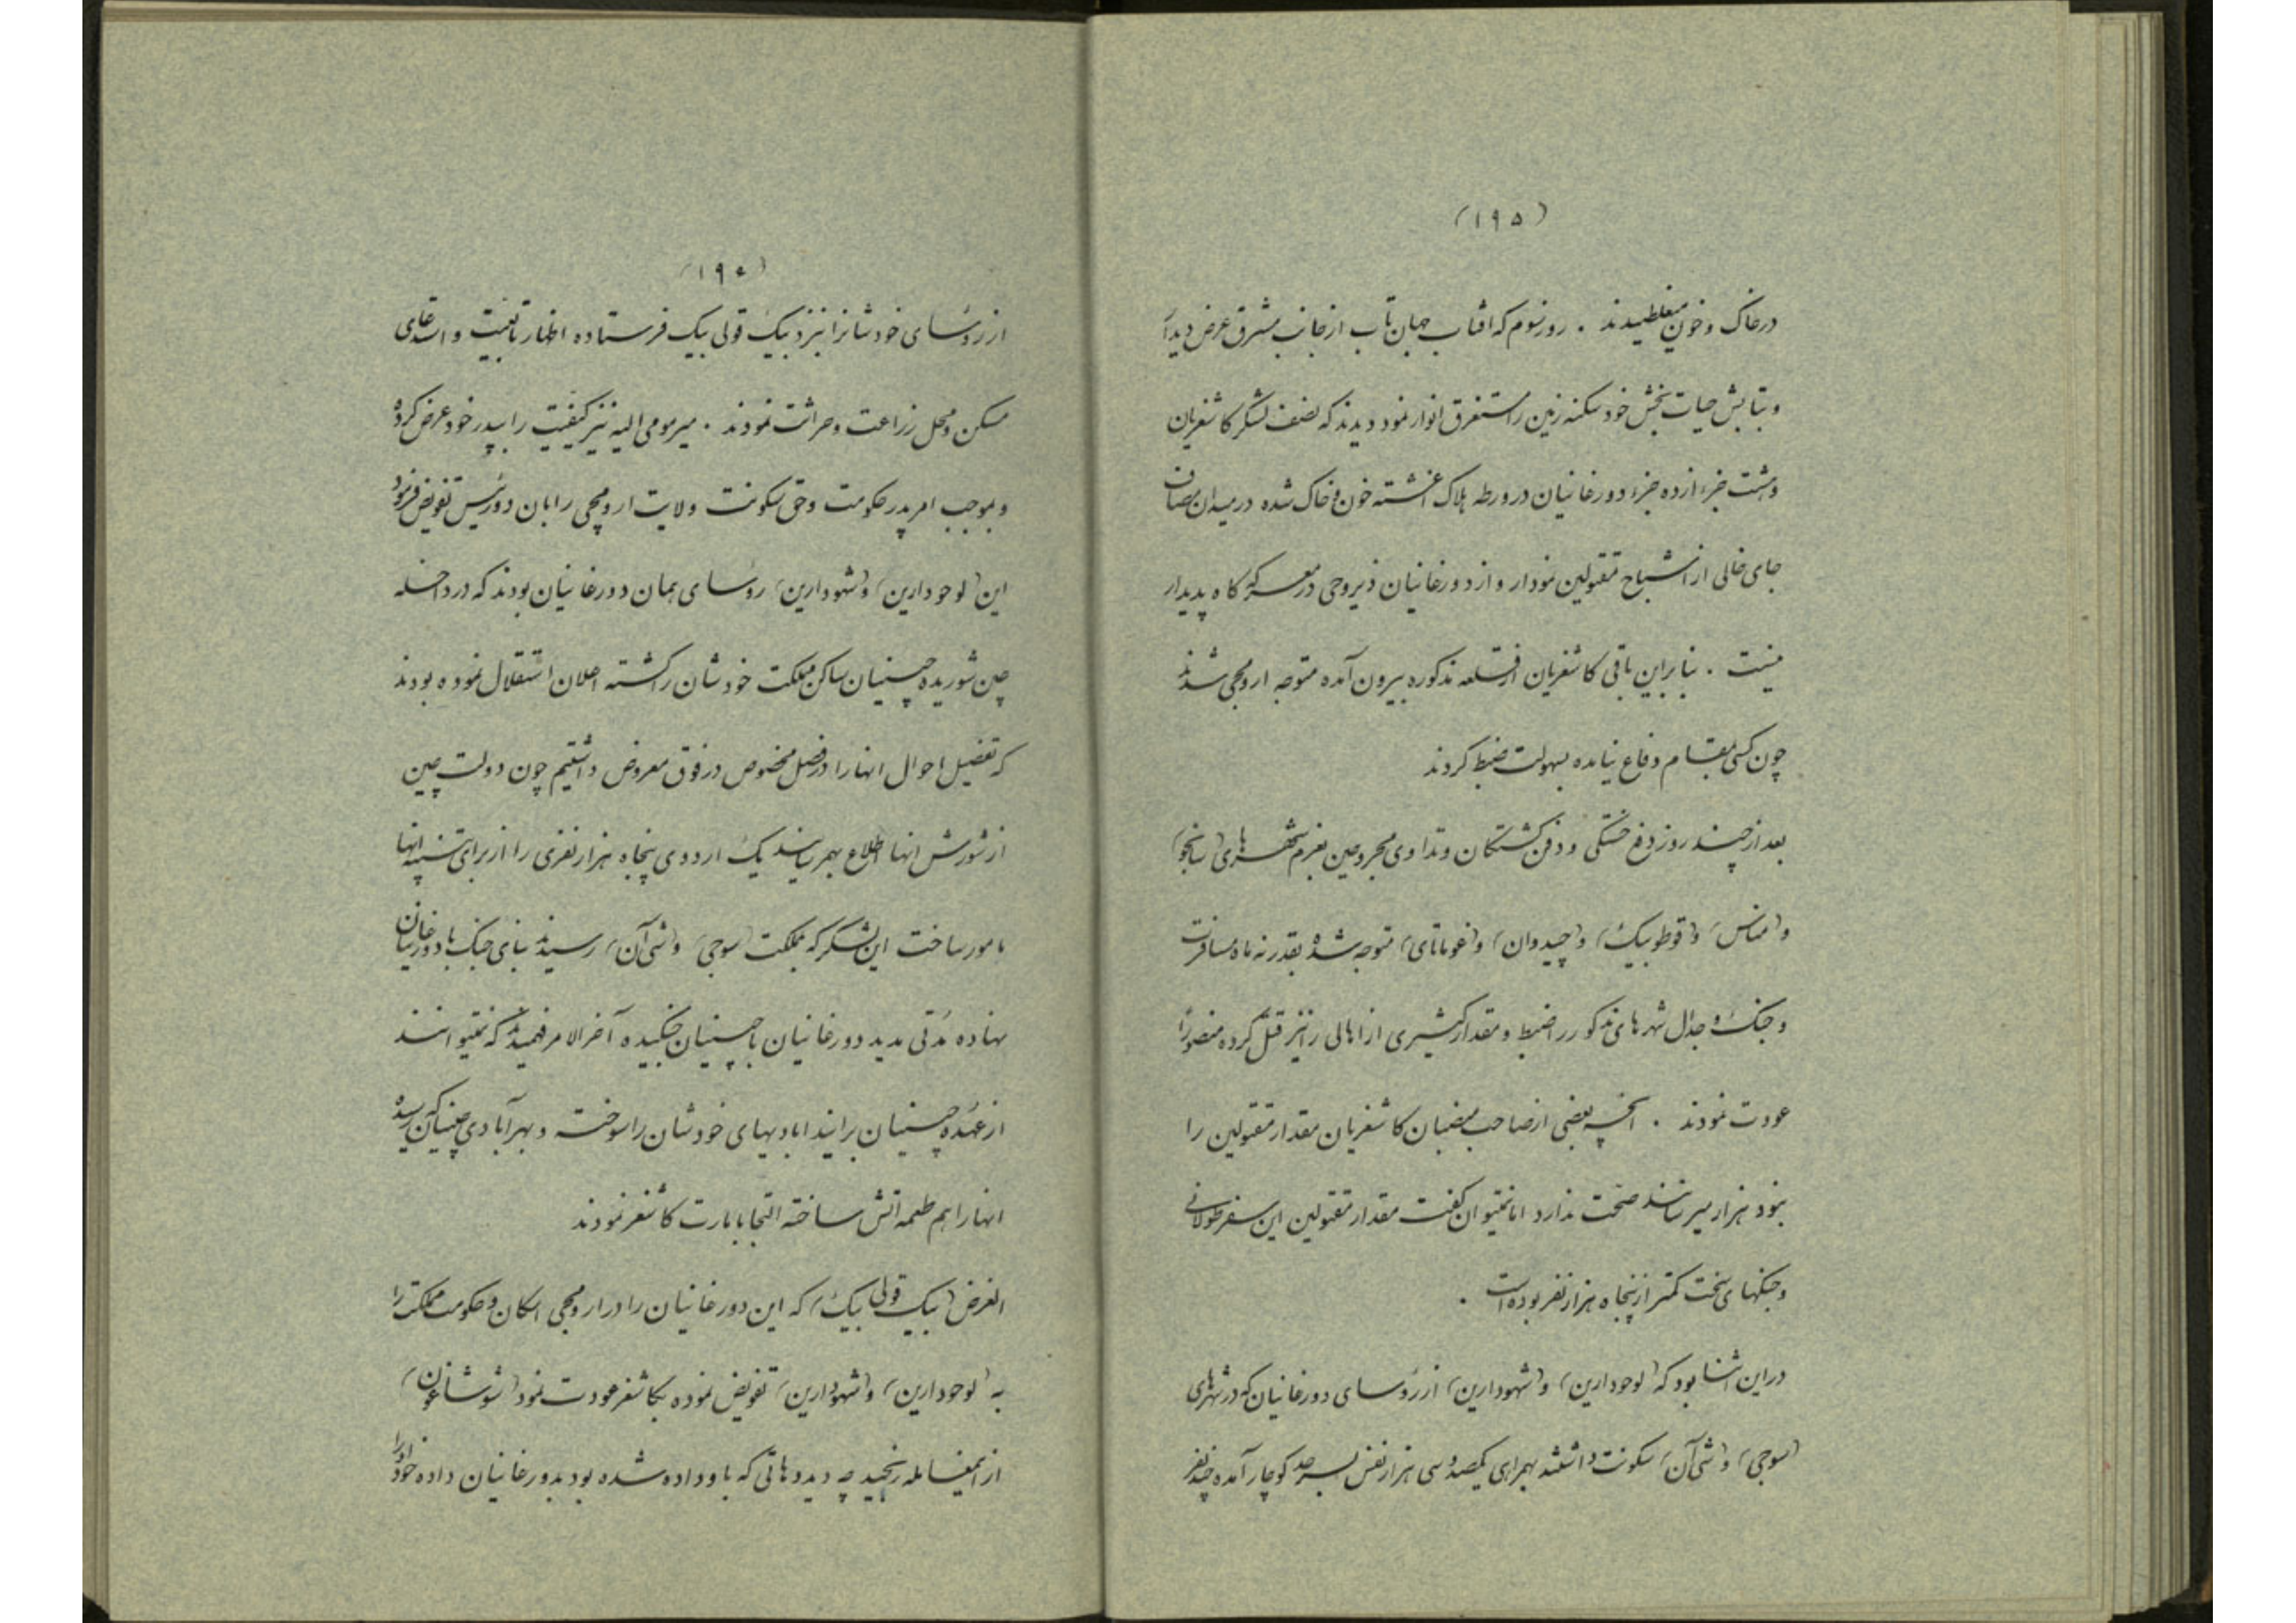 (۱۹۵)
در خاک و خون میغلطیدند . روز سوم که افتاب جهان تاب از جانب مشرق عرض دیدار
و بتابش حیات بخش خود سکنه زمین را مستغرق انوار نمود دیدند که نصف لشکر کاشغریان
و هشت جزء از ده جزء دورغانیان در ورطه هلاک اغشته خون و خاک شده در میدان مصاف
جای خالی از اشباح مقتولین نمودار و از دورغانیان ذیروحی در معرکه کاه پدیدار
نیست . بنا براین باقی کاشغریان از قلعه مذکوره بیرون آمده متوجه ارومچی شدند
چون کسی بمقام دفاع نیامده بسهولت ضبط کردند
بعد از چند روز دفع خستگی و دفن کشتکان و تداوی مجروحین بعزم شهرهای (سانجو)
و (مناس) و (قوطوبیک) و (چیدوان) و (غوماتای) متوجه شده بقدر نه ماه مسافرت
و جنک و جدال شهرهای مذکور را ضبط و مقدار کثیری از اهالی را نیز قتل کرده منصورا
عودت نمودند . اگرچه بعضی از صاحب منصبان کاشغریان مقدار مقتولین را
بنود هزار میرسانند صحت ندارد اما نمیتوان کفت مقدار مقتولین این سفر طولانی
و جنکهای سخت کمتر از پنجاه هزار نفر بوده است .
در این اثنا بود که (لوحودارین) و (شهودارین) از رؤسای دورغانیان که در شهرهای
(سوجی) و (شی آن) سکونت داشتند بهمراهی یکصد و سی هزار نفس بسرحد کوچار آمده چند نفر
(۱۹۶)
از رؤسای خودشانرا بنزد بیک قولی بیک فرستاده اظهار تابعیت و استدعای
مسکن و محل زراعت و حراثت نمودند . میر مومی الیه نیز کیفیت را بپدر خود عرض کرده
و بموجب امر پدر حکومت و حق سکونت ولایت ارومچی را بان دو رئیس تفویض فرمود
این (لوحودارین) و (شهودارین) رؤسای همان دورغانیان بودند که در داخله
چین شوریده چینیان ساکن مملکت خودشان را کشته اعلان استقلال نموده بودند
که تفصیل احوال انها را در فصل مخصوص در فوق معروض داشتیم چون دولت چین
از شورش انها اطلاع بهمرسانید یک اردوی پنجاه هزار نفری را از برای تنبیه انها
مامور ساخت این لشکر که بمملکت (سوجی) و (شی آن) رسیدند بنای جنک با دورغانیان
نهاده مدتی مدید دورغانیان با چینیان جنکیده آخر الامر فهمیدند که نمیتوانند
از عهده چینیان برایند ابادیهای خودشان را سوخته و بهر آبادی چینیان که رسیده
انها را هم طعمه اتش ساخته التجا بامارت کاشغر نمودند
الغرض (بیک قولی بیک) که این دورغانیان را در ارومچی اسکان و حکومت مملکت را
به (لوحودارین) و (شهودارین) تفویض نموده بکاشغر عودت نمود (شوشاغون)
از اینمعامله رنجید چه دید دهاتی که باو داده شده بود بدورغانیان داده خود را